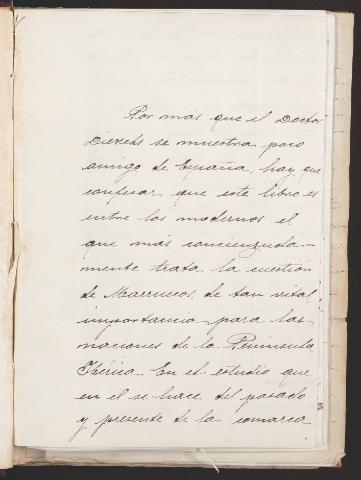 Por más que el Doctor
Diercks se muestra poco
amigo de España, hay que
confesar que este libro es
entre los modernos el
que más concienzuda-
mente trata la cuestión
de Marruecos, de tan vital
importancia para las
naciones de la Península
Ibérica. En el estudio que
en él se hace del pasado
y presente de la comarca